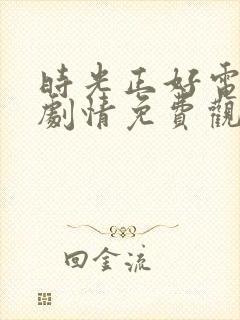 時光正好電
劇情免費觀
回金流